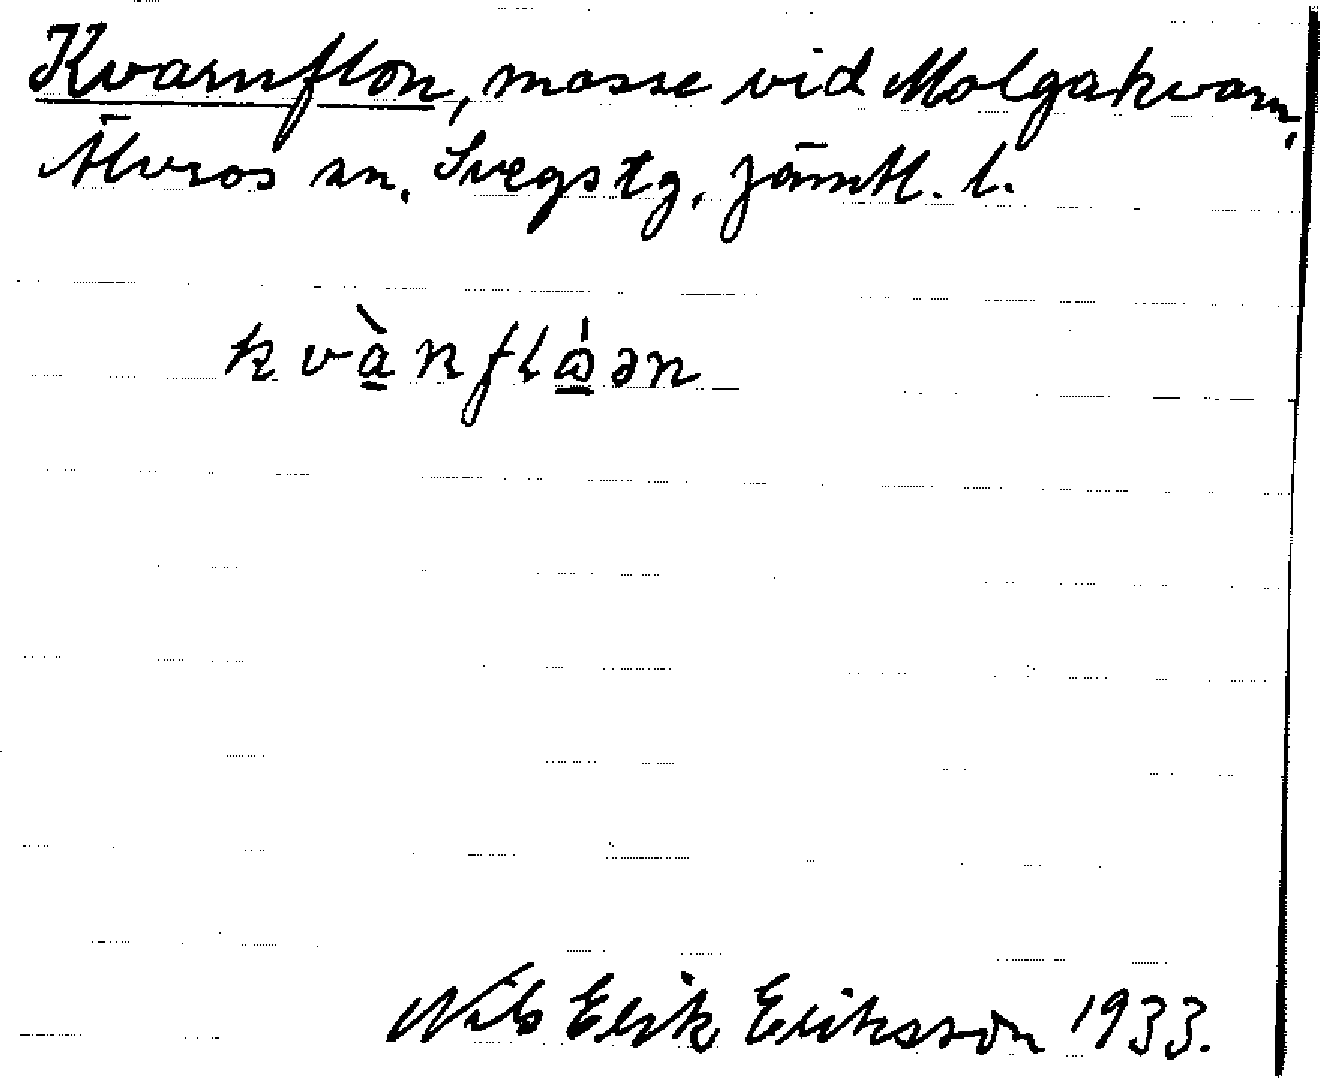 Kvarnflon, mosse vid Molgakvarn,
Älvros sn, Svegs tg, Jämtl. l.
kvànflɷ́ən
Nils Erik Eriksson 1933.